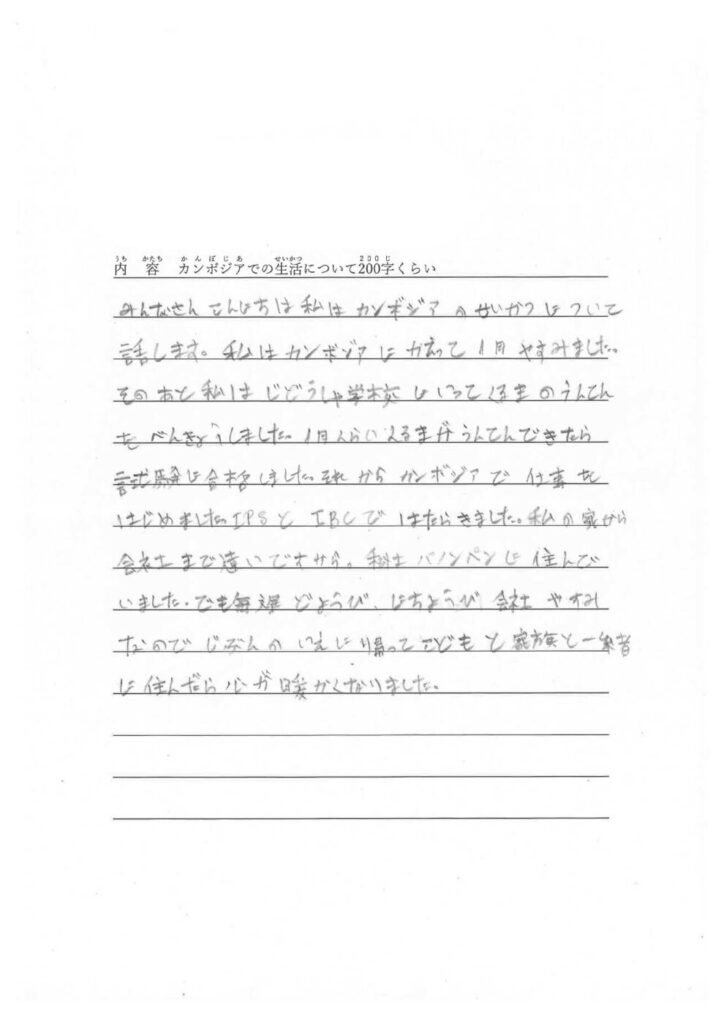 うち かたち かんぼじあ せいかつ 200じ
内 容 カンボジアでの生活について200字くらい
みんなさん こんにちは 私は カンボジア のせいかつについて
話します。私は カンボジア に かえって 1月 やすみました。
そのあと 私は じどうしゃ学校 に いって くるま のうんてん
を べんきょうしました。1月くらい くるまが うんてんできたら
試験に合格しました。それから カンボジアで 仕事を
はじめました IPSと IBCで はたらきました。私の家から
会社まで遠いですから。私は パノンペンに 住んで
いました。でも毎週 どようび、にちようび 会社 やすみ
なので じぶんの いえに 帰って こどもと 家族と一緒
に 住んだら 心が 暖かくなりました。